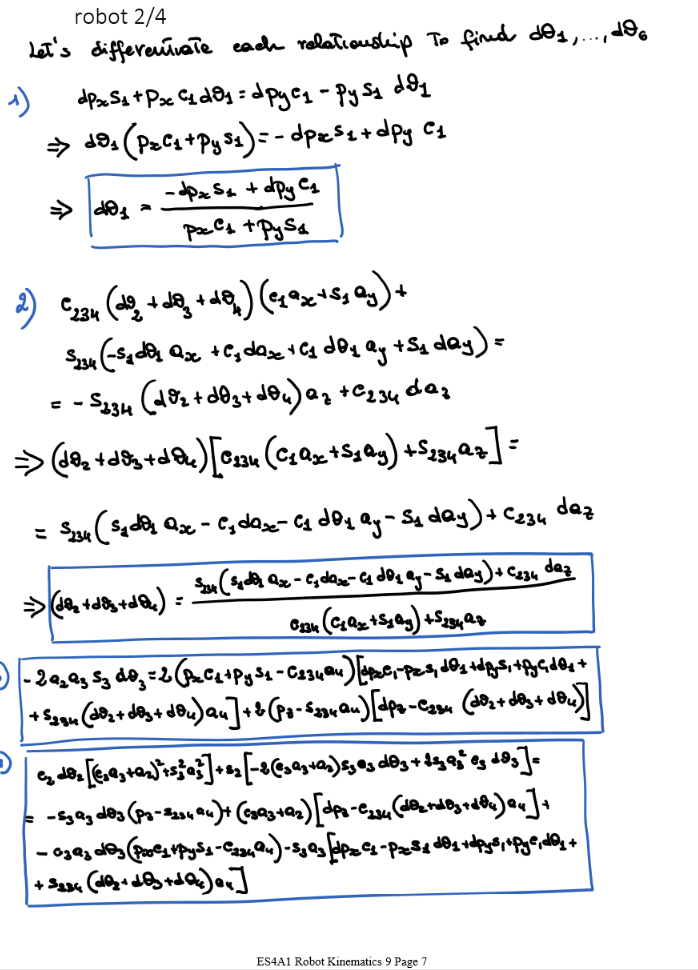 robot 2/4
Let's differentiate each relationship to find dθ₁,...,dθ₆
1) dpₓs₁ + pₓc₁dθ₁ = dp_yc₁ - p_ys₁ dθ₁
⇒ dθ₁(pₓc₁+p_ys₁) = -dpₓs₁ + dp_y c₁
⇒ dθ₁ = (-dpₓs₁ + dp_yc₁) / (pₓc₁ + p_ys₁)
2) c₂₃₄(dθ₂+dθ₃+dθ₄)(c₁aₓ+s₁a_y) +
s₂₃₄(-s₁dθ₁ aₓ + c₁daₓ + c₁ dθ₁ a_y + s₁ da_y) =
= -s₂₃₄(dθ₂+dθ₃+dθ₄)a_z + c₂₃₄ da_z
⇒ (dθ₂+dθ₃+dθ₄)[c₂₃₄(c₁aₓ+s₁a_y)+s₂₃₄a_z] =
= s₂₃₄(s₁dθ₁ aₓ - c₁daₓ - c₁ dθ₁ a_y - s₁ da_y) + c₂₃₄ da_z
⇒ (dθ₂+dθ₃+dθ₄) = (s₂₃₄(s₁dθ₁ aₓ - c₁daₓ - c₁ dθ₁ a_y - s₁ da_y) + c₂₃₄ da_z) / (c₂₃₄(c₁aₓ+s₁a_y)+s₂₃₄a_z)
-2a₂a₃ s₃ dθ₃ = 2(pₓc₁+p_ys₁-c₂₃₄a₄)[dpₓc₁-pₓs₁dθ₁+dp_ys₁+p_yc₁dθ₁+
+s₂₃₄(dθ₂+dθ₃+dθ₄)a₄]+2(p_z-s₂₃₄a₄)[dp_z-c₂₃₄(dθ₂+dθ₃+dθ₄)]
c₂dθ₂[(c₃a₃+a₂)²+s₃²a₃²]+s₂[-2(c₃a₃+a₂)s₃a₃dθ₃+2s₃a₃²c₃dθ₃]=
= -s₃a₃dθ₃(p_z-s₂₃₄a₄)+(c₃a₃+a₂)[dp_z-c₂₃₄(dθ₂+dθ₃+dθ₄)a₄]+
-c₃a₃dθ₃(pₓc₁+p_ys₁-c₂₃₄a₄)-s₃a₃[dpₓc₁-pₓs₁dθ₁+dp_ys₁+p_yc₁dθ₁+
+s₂₃₄(dθ₂+dθ₃+dθ₄)a₄]
ES4A1 Robot Kinematics 9 Page 7